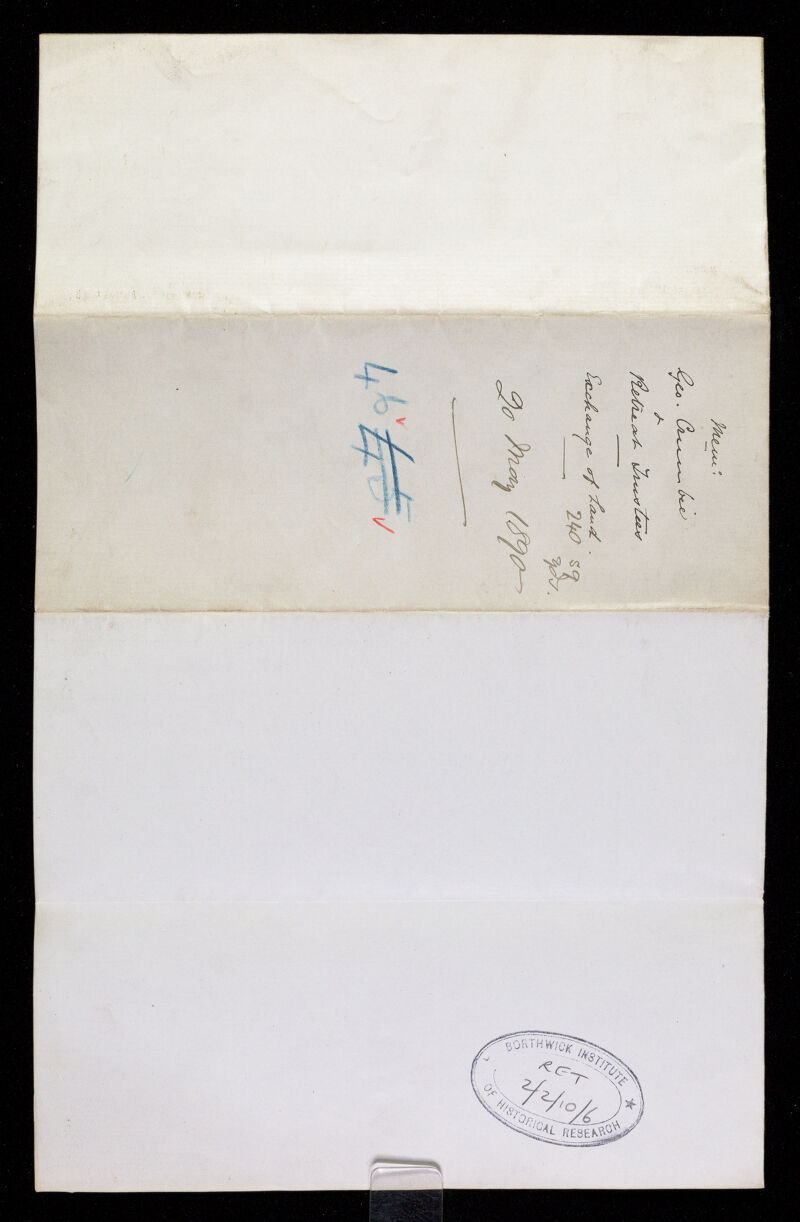 Mem:
Geo. Crumbie
&
Retreat Trustees
Exchange of Land. 240 sq
yds.
20 May 1890
46 45
BORTHWICK INSTITUTE
RET
2/2/10/6
OF HISTORICAL RESEARCH